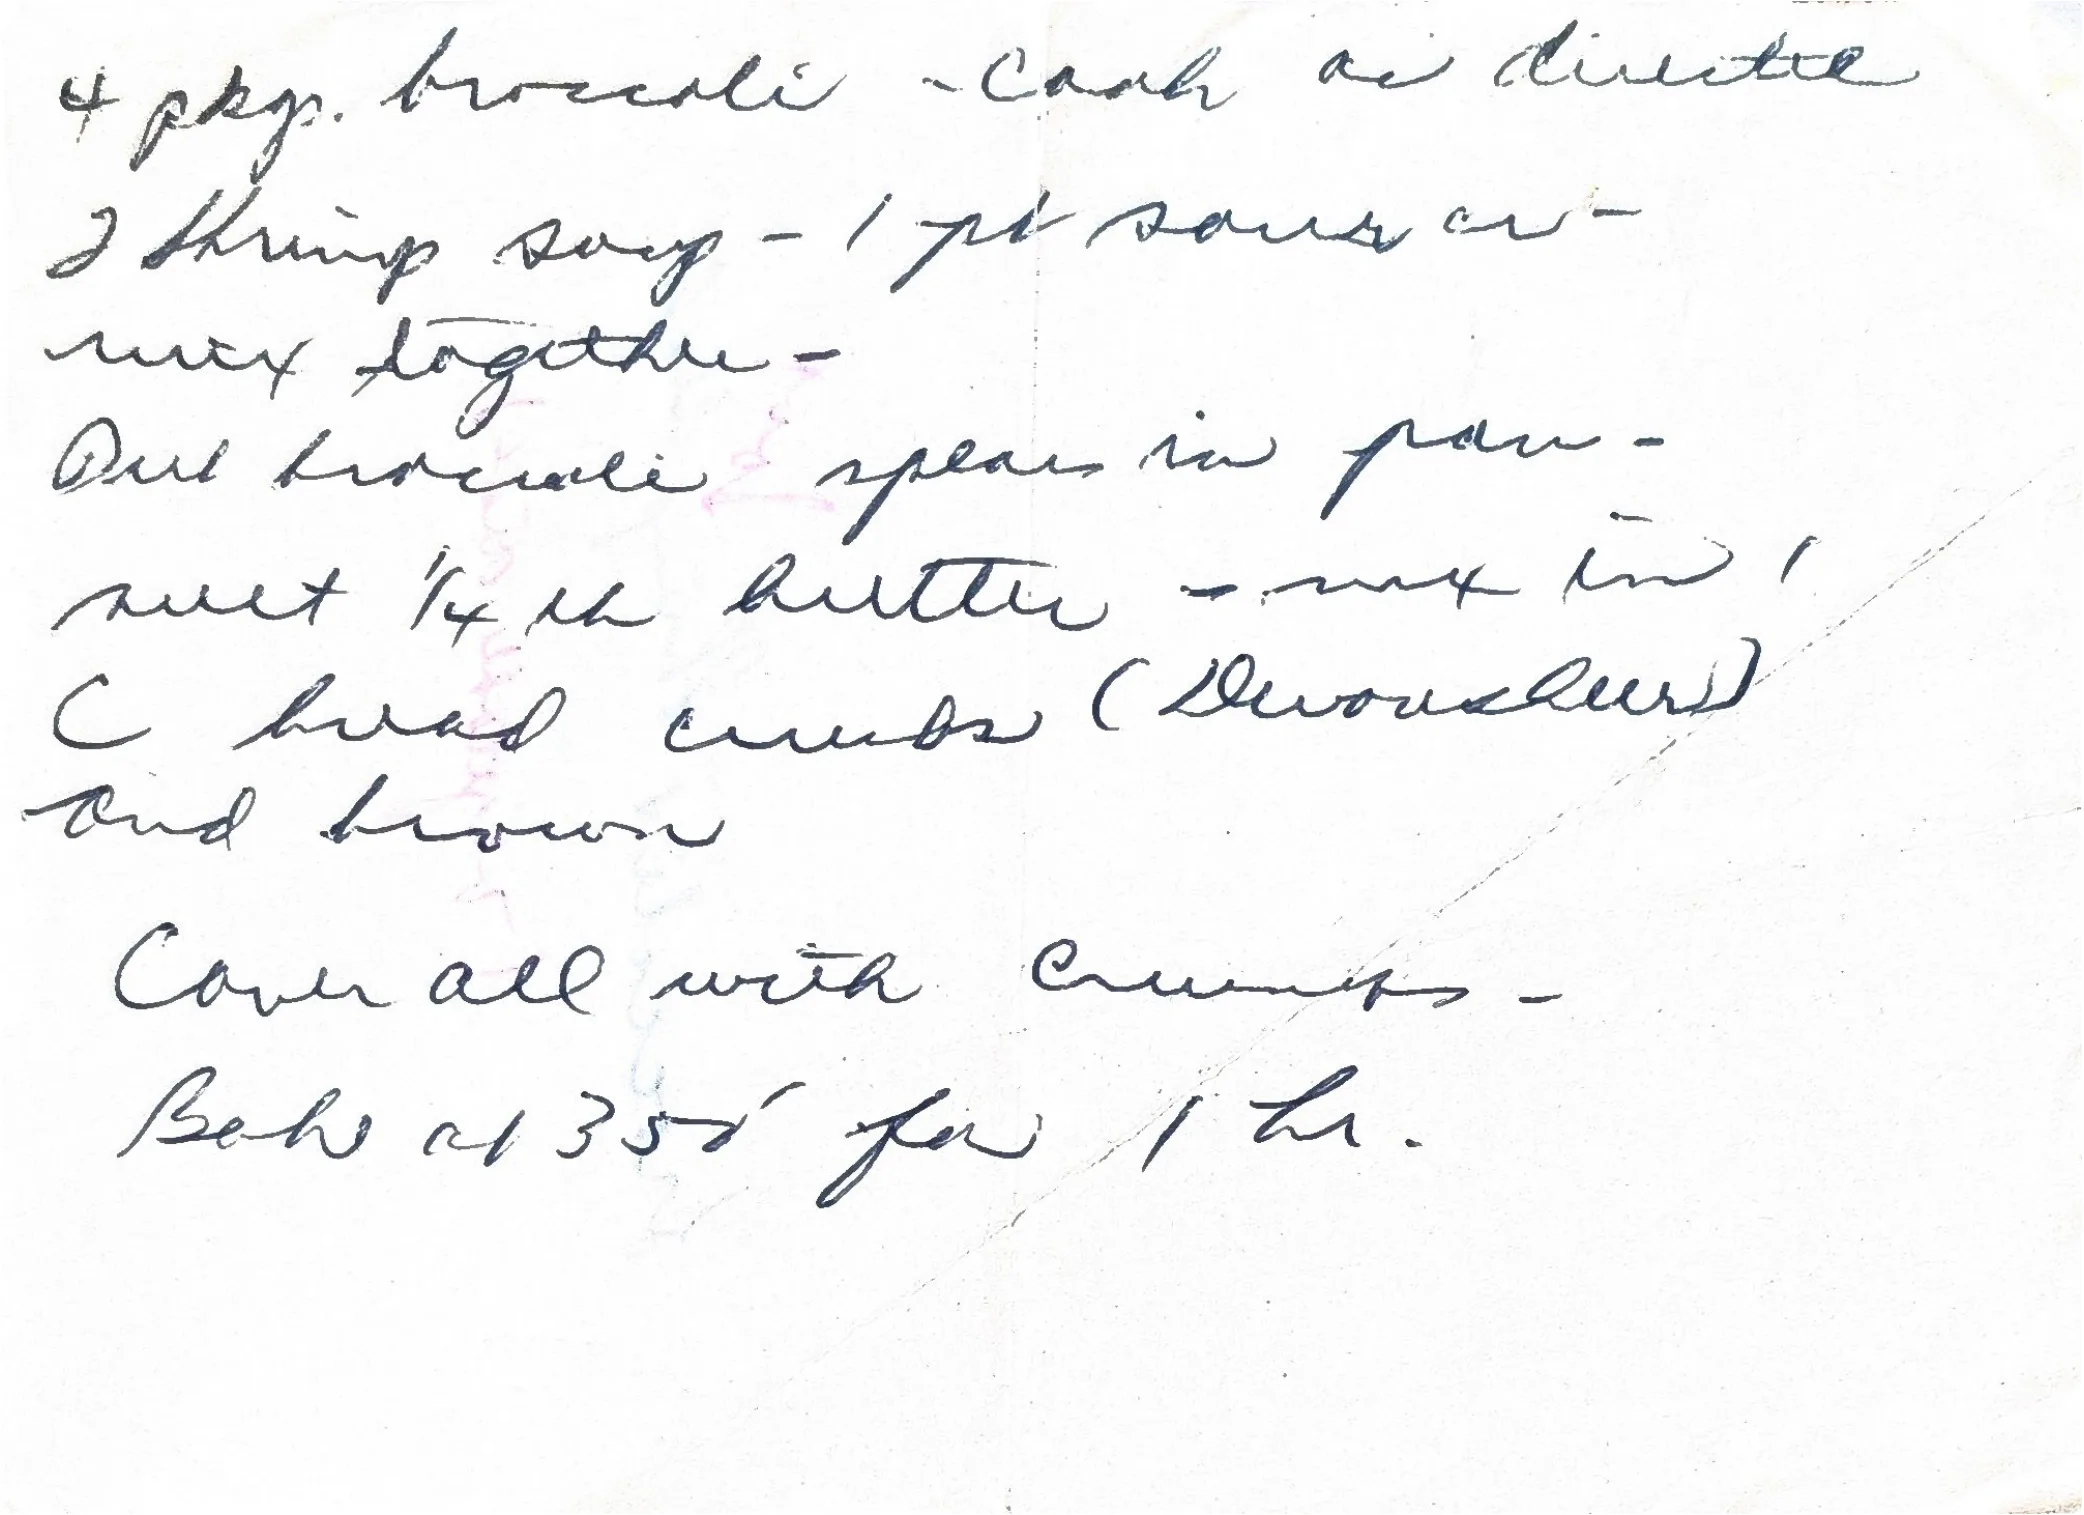 4 pkgs. broccoli - Cook as directed
2 shrimp soup - 1 pt sour cr -
mix together -
Put broccoli spears in pan -
melt 1/4 lb butter - mix in 1
C bread crumbs (Devonsheer)
and brown
Cover all with crumbs -
Bake at 350° for 1 hr.